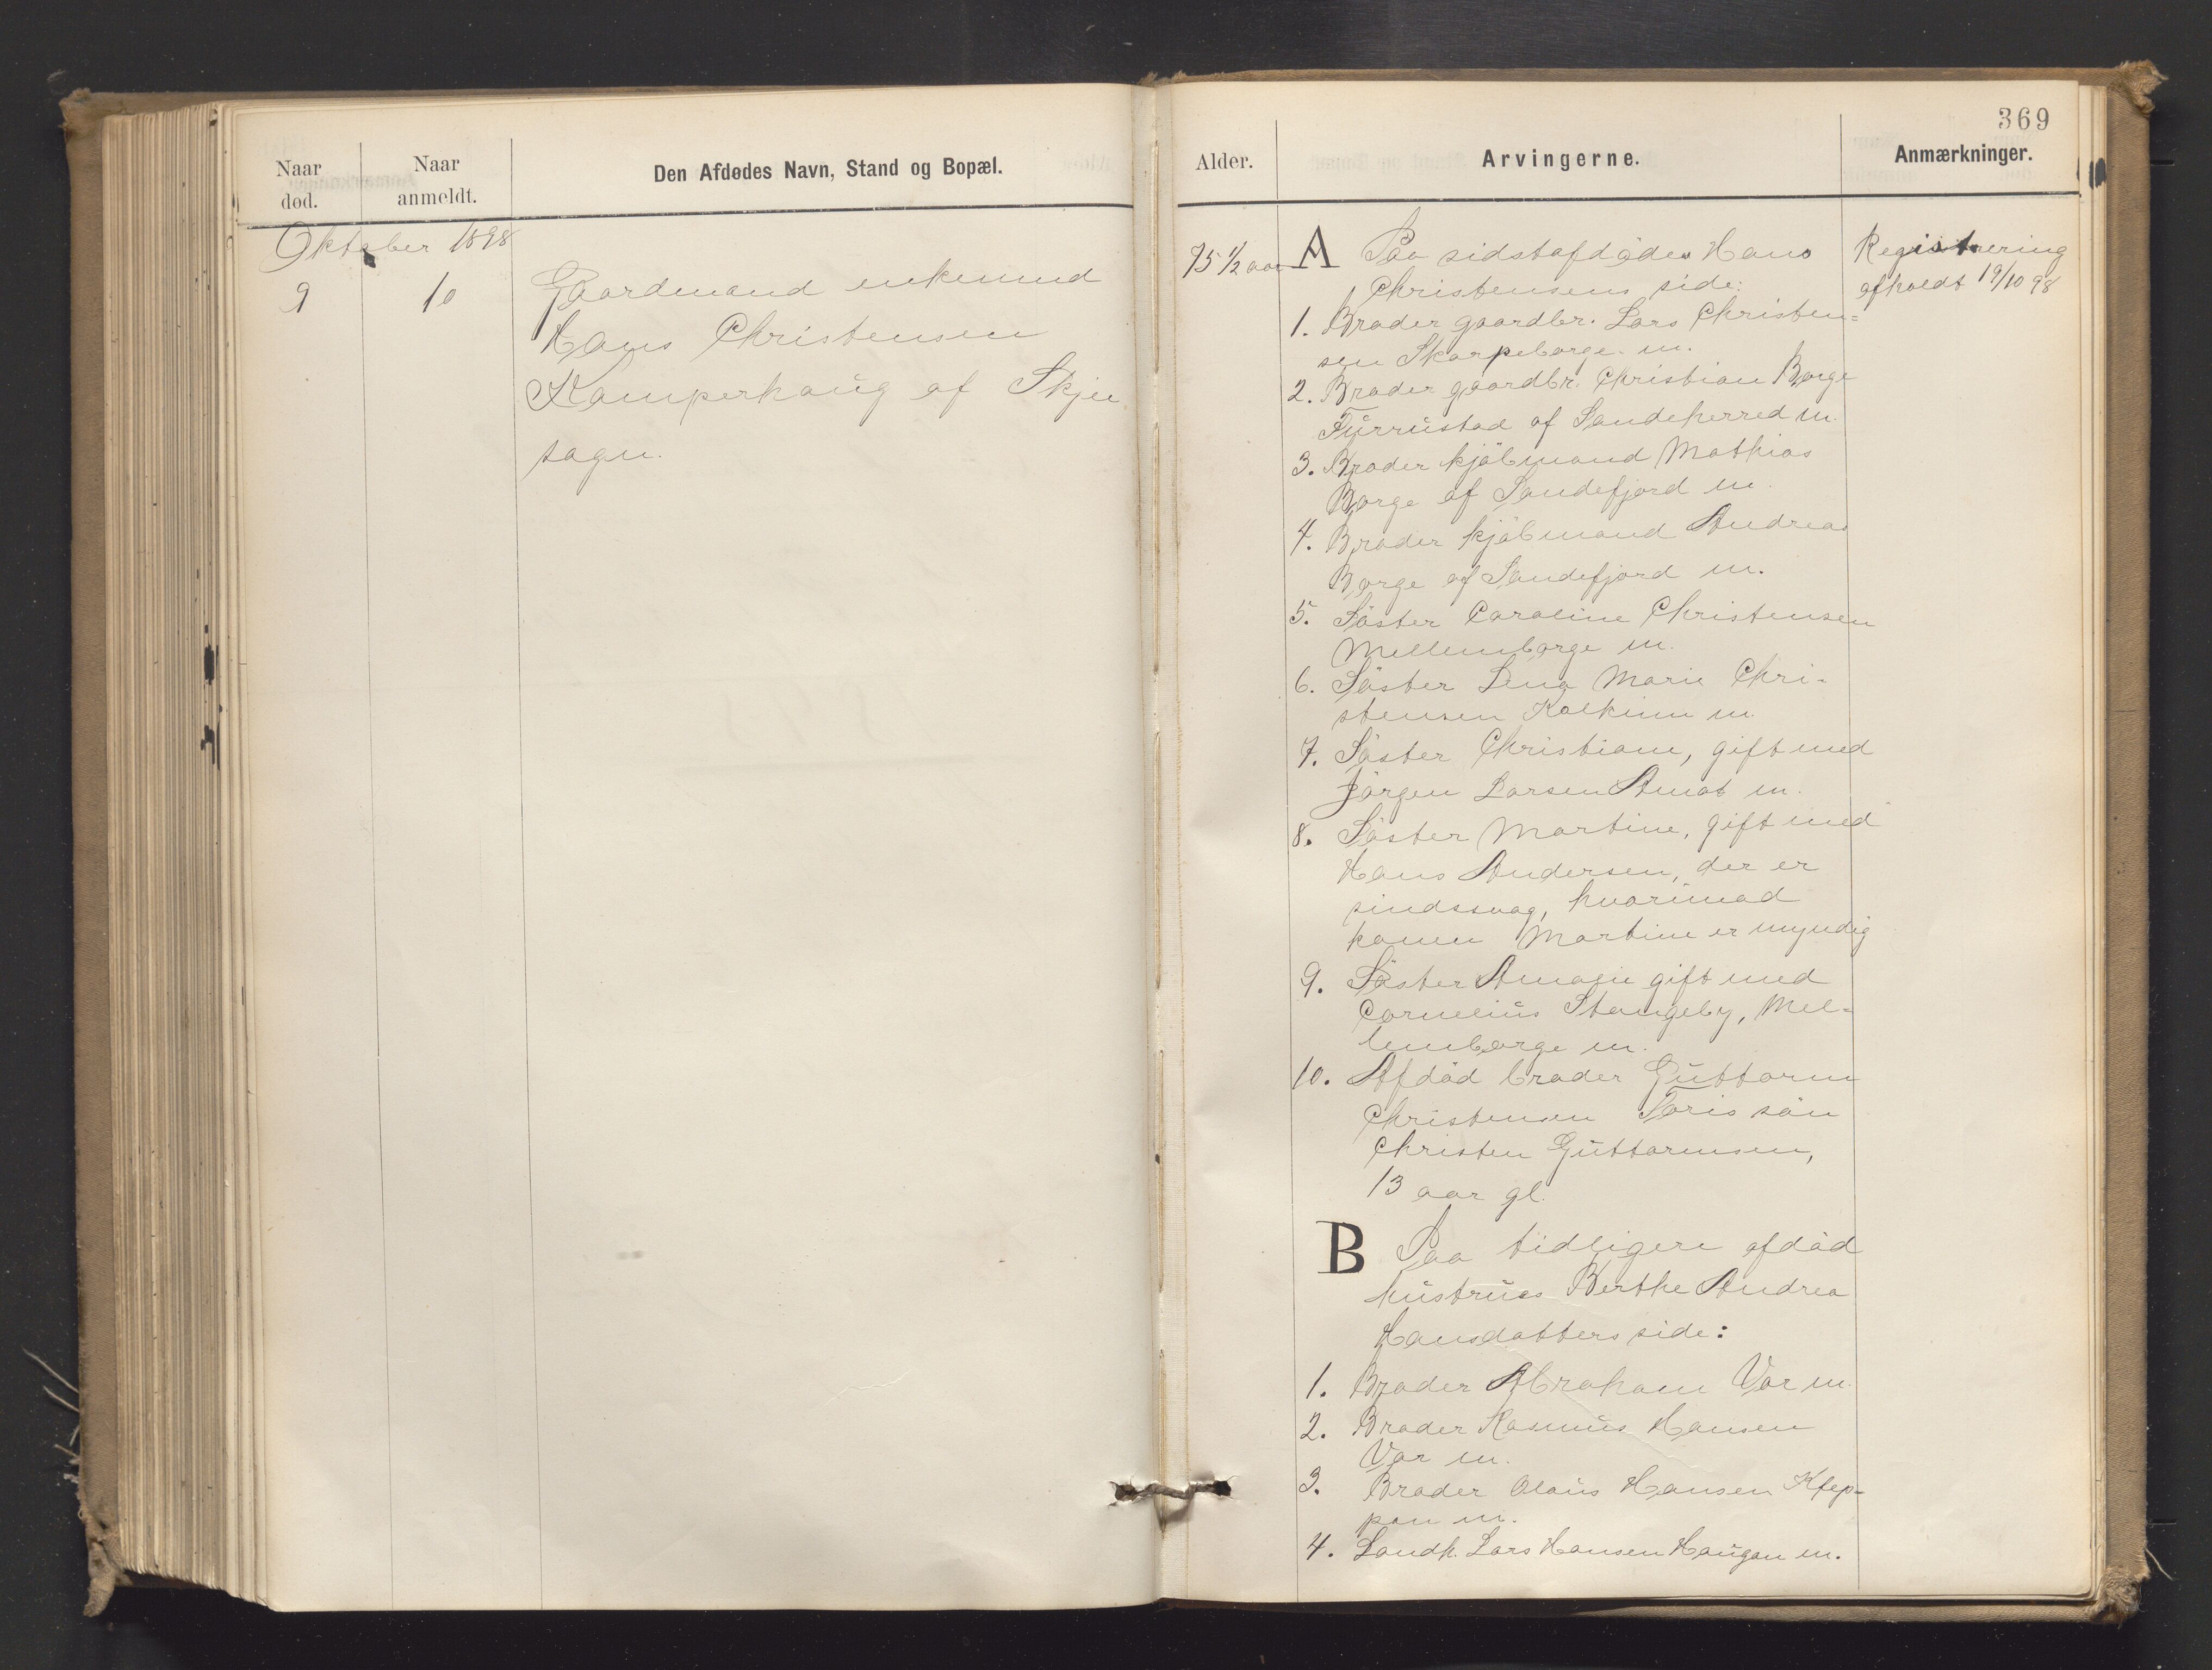 369
Naar
død.
Naar
anmeldt.
Den Afdødes Navn, Stand og Bopæl.
Alder.
Arvingerne.
Anmærkninger.
Oktober 1898
9
10
Gaardmand enkemand
Hans Christensen
Kamperhaug af Skjee
sogn.
75 1/2 aar
A Paa sidstafdødes Hans
Christensens side:
1. Broder gaardbr. Lars Christen=
sen Skorpeborge m.
2. Broder gaardbr. Christian Borge
Furrustad af Sandeherred m.
3. Broder kjøbmand Mathias
Borge af Sandefjord m.
4. Broder kjøbmand Andreas
Borge af Sandefjord m.
5. Søster Caroline Christensen
Mellemborge m.
6. Søster Lena Marie Chri-
stensen Kolkinn m.
7. Søster Christiane, gift med
Jørgen Larsen Amot m.
8. Søster Martine, gift med
Hans Andersen, der er
sindssvag, hvorimod
konen Martine er myndig
9. Søster Amalie gift med
Cornelius Stangeby, Mel=
lemborge m.
10. Afdød broder Guttorm
Christensen Foris søn
Christen Guttormsen,
13 aar gl.
B Paa tidligere afdød
hustrues Berthe Andrea
Hansdatters side:
1. Broder Abraham Vor m.
2. Broder Rasmus Hansen
Vor m.
3. Broder Olaus Hansen Klep-
pan m.
4. Landh. Lars Hansen Haugan m.
Registrering
afholdt 19/10 98